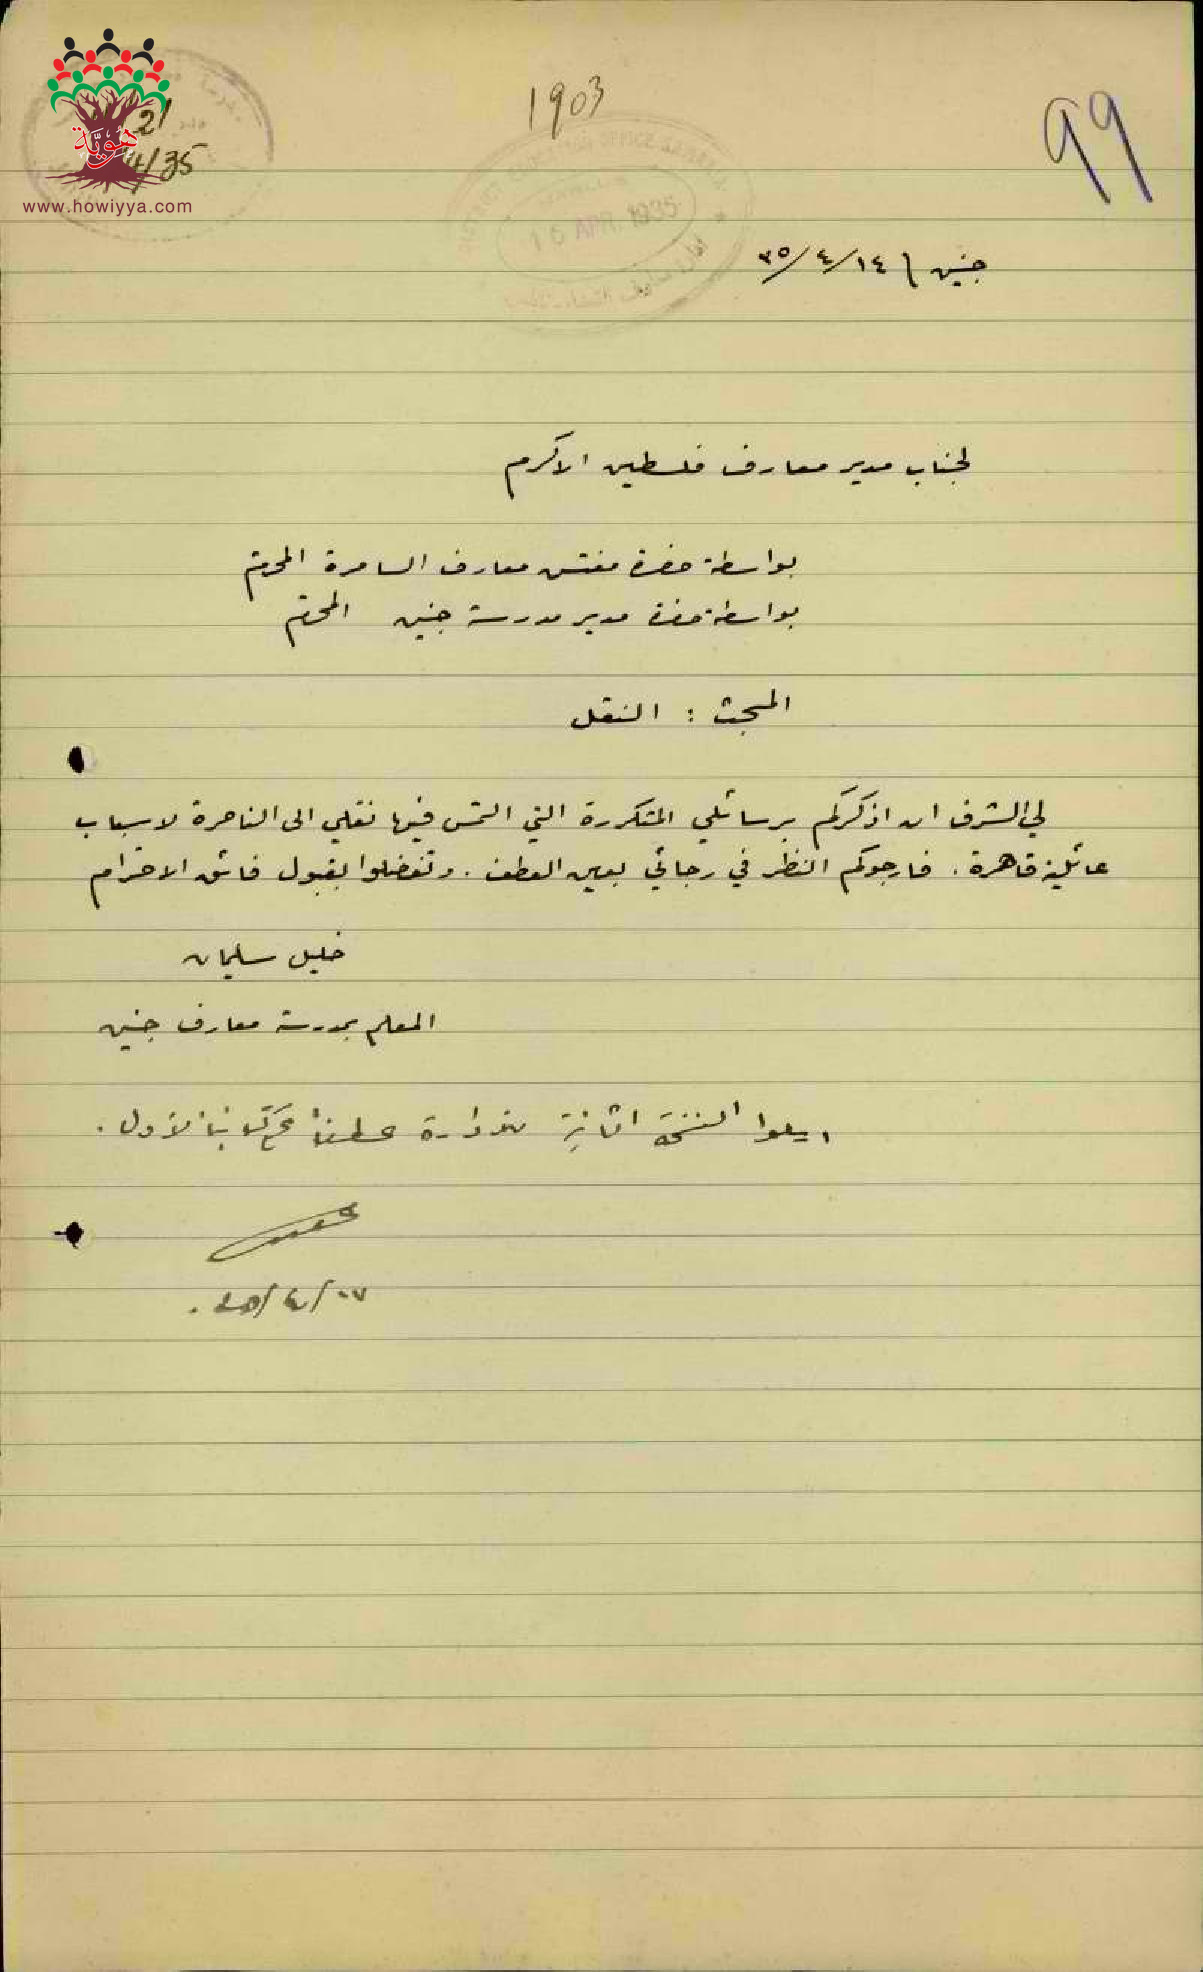 1903
99
21
4/35
هُوِيَّة
www.howiyya.com
DISTRICT EDUCATION OFFICE SAMARIA
16 APR. 1935
جنين ١٤/٤/٣٥
لجناب مدير معارف فلسطين الاكرم
بواسطة حضرة مفتش معارف السامرة المحترم
بواسطة حضرة مدير مدرسة جنين المحترم
المبحث : النقل
لي الشرف ان اذكركم برسائلي المتكررة التي التمس فيها نقلي الى الناصرة لاسباب
عائلية قاهرة . فارجوكم النظر في رجائي بعين العطف . وتفضلوا بقبول فائق الاحترام
خليل سليمان
المعلم بمدرسة معارف جنين
النسخة الثانية